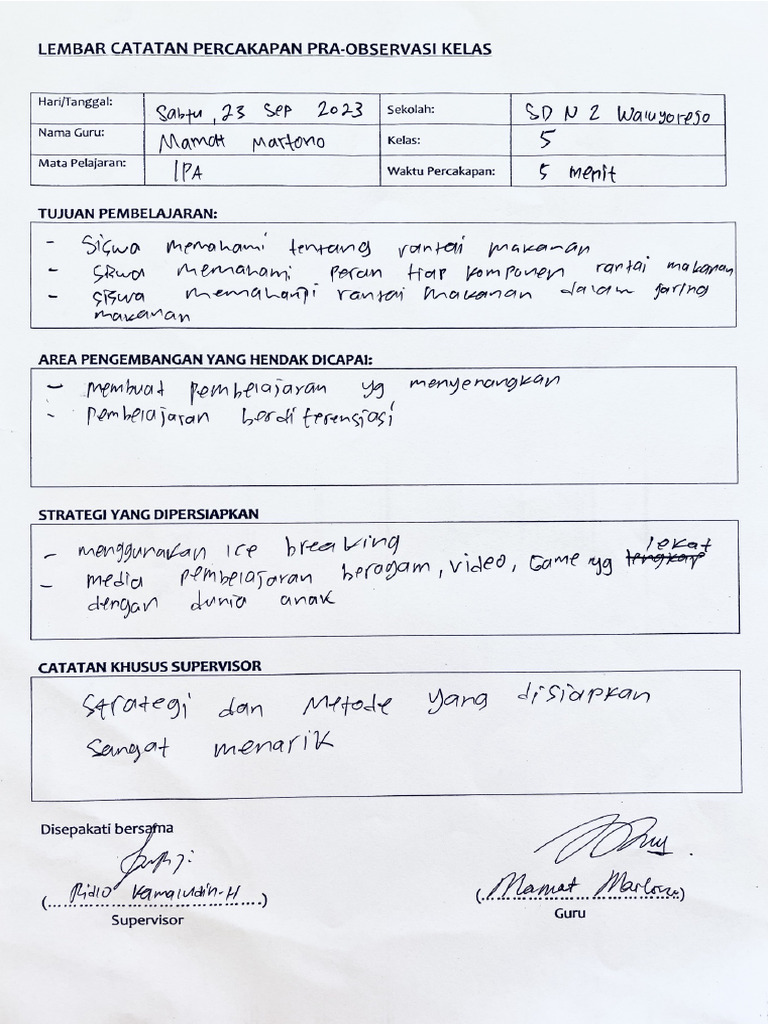 LEMBAR CATATAN PERCAKAPAN PRA-OBSERVASI KELAS
Hari/Tanggal: Sabtu, 23 Sep 2023 Sekolah: SD N 2 Waluyorejo
Nama Guru: Mamat Martono Kelas: 5
Mata Pelajaran: IPA Waktu Percakapan: 5 menit
TUJUAN PEMBELAJARAN:
- Siswa memahami tentang rantai makanan
- siswa memahami peran tiap komponen rantai makanan
- siswa memahami rantai makanan dalam jaring
makanan
AREA PENGEMBANGAN YANG HENDAK DICAPAI:
- membuat pembelajaran yg menyenangkan
- pembelajaran berdiferensiasi
STRATEGI YANG DIPERSIAPKAN
- menggunakan ice breaking
- media pembelajaran beragam, video, Game yg lekat
dengan dunia anak
CATATAN KHUSUS SUPERVISOR
Strategi dan Metode yang disiapkan
sangat menarik
Disepakati bersama
(Ridlo Kamaludin.H) (Mamat Martono)
Supervisor Guru